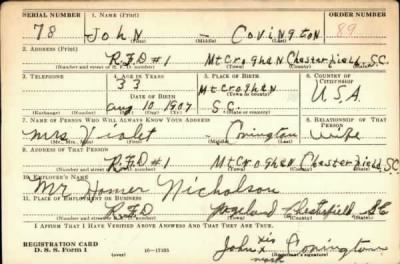 SERIAL NUMBER 1. NAME (Print) ORDER NUMBER
78 John - Covington 89
(First) (Middle) (Last)
2. ADDRESS (Print)
R.F.D #1 McCroghan Chesterfield, S.C.
(Number and street or R. F. D. number) (Town) (County) (State)
3. TELEPHONE 4. AGE IN YEARS 5. PLACE OF BIRTH 6. COUNTRY OF CITIZENSHIP
33 McCroghan
DATE OF BIRTH (Town or county) U.S.A.
Aug 10, 1907 S.C.
(Exchange) (Number) (Mo.) (Day) (Yr.) (State or country)
7. NAME OF PERSON WHO WILL ALWAYS KNOW YOUR ADDRESS 8. RELATIONSHIP OF THAT PERSON
Mrs Violet - Covington Wife
(Mr., Mrs., Miss) (First) (Middle) (Last)
9. ADDRESS OF THAT PERSON
R.F.D #1 McCroghan Chesterfield, S.C.
(Number and street or R. F. D. number) (Town) (County) (State)
10. EMPLOYER'S NAME
Mr Homer Nicholson
11. PLACE OF EMPLOYMENT OR BUSINESS
R.F.D Pageland Chesterfield S.C
(Number and street or R. F. D. number) (Town) (County) (State)
I AFFIRM THAT I HAVE VERIFIED ABOVE ANSWERS AND THAT THEY ARE TRUE.
REGISTRATION CARD his
D. S. S. Form 1 John x Covington
(over) 16-17105 mark (Registrant's signature)